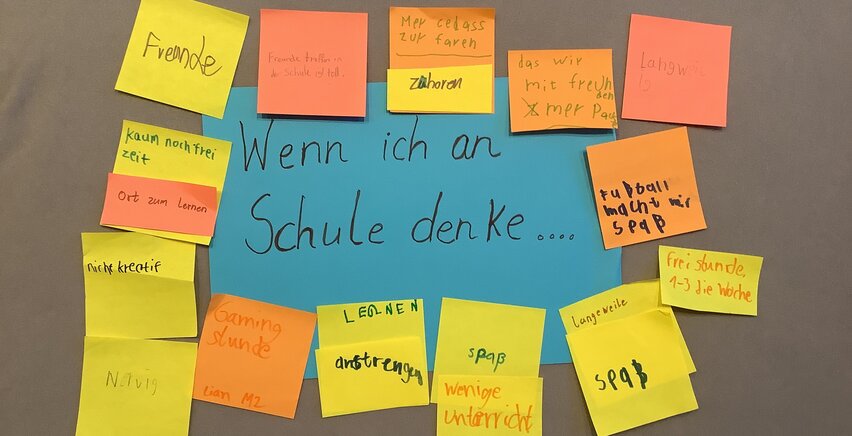 Freunde
Freunde treffen in
der Schule ist toll.
Mer cedass
zur faren
zuhoren
das wir
mit freun
den
mer Pau
Langweil
ig
kaum noch frei
zeit
Ort zum Lernen
Wenn ich an
Schule denke....
Fußball
macht mir
spaß
nicht kreatif
frei stunde,
1-3 die Woche
Gaming
stunde
Lian M2
LERNEN
anstrengen
spaß
wenige
unterricht
Langeweile
spaß
Nervig